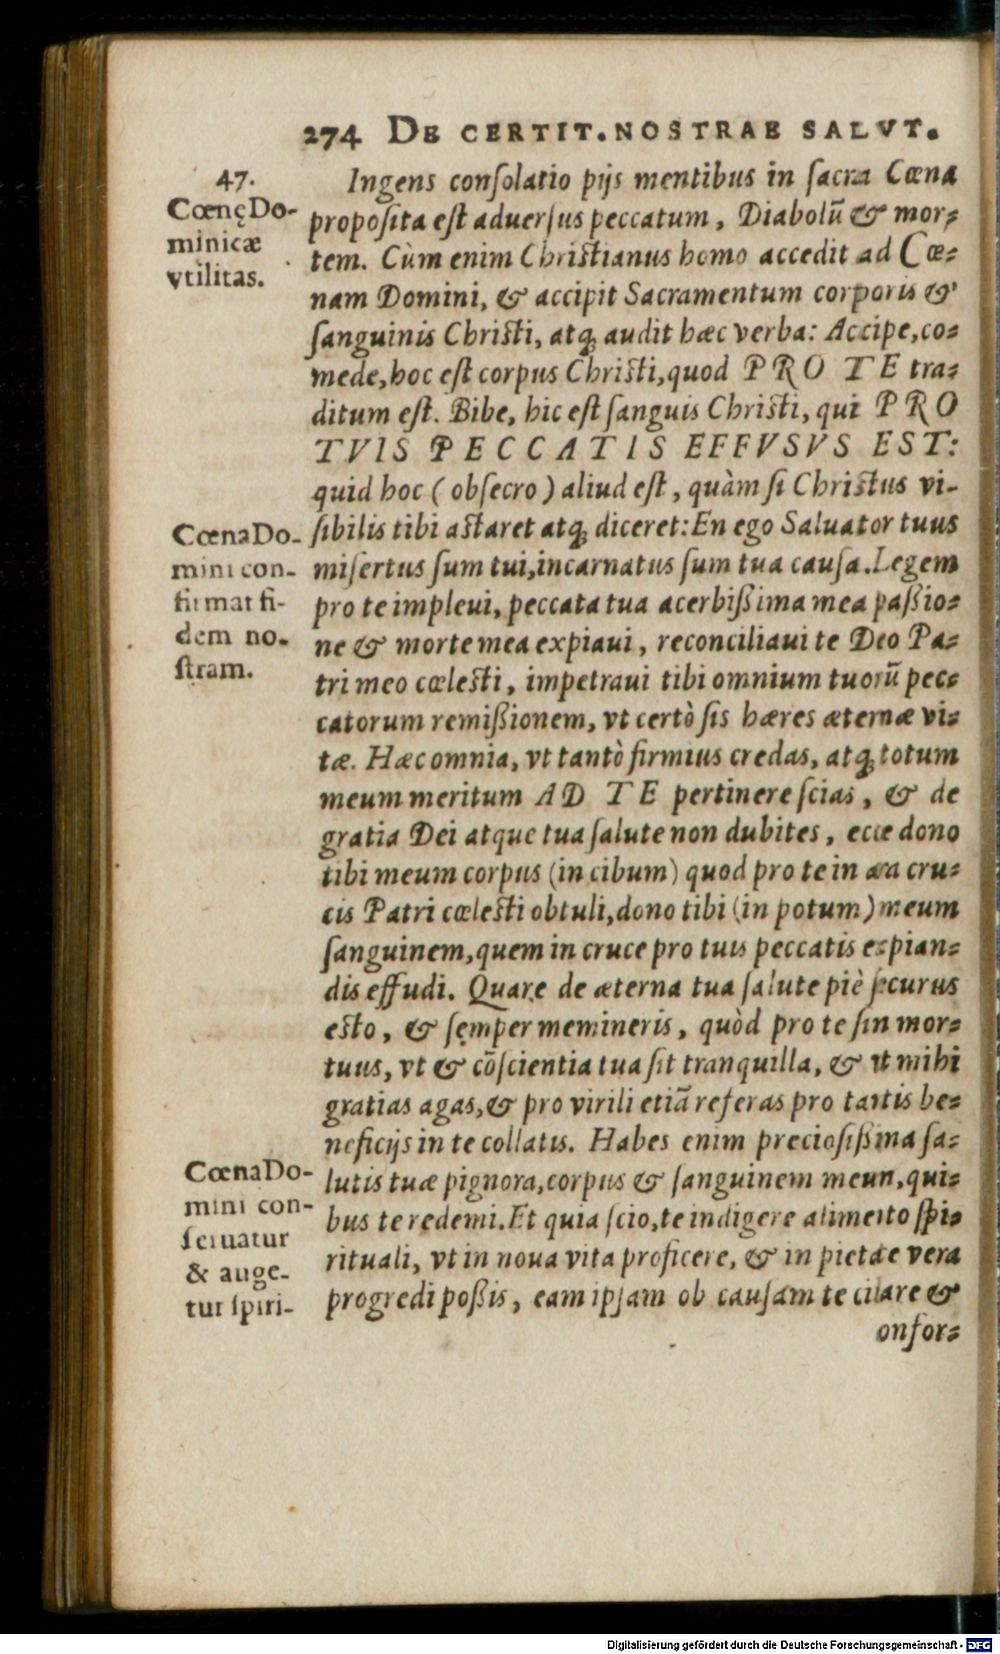 274 DE CERTIT. NOSTRAE SALVT.
47.
CœnęDo-
minicæ
vtilitas.
Ingens conſolatio pijs mentibus in ſacra Cœna
propoſita eſt aduerſus peccatum, Diabolū & mor-
tem. Cùm enim Chriſtianus homo accedit ad Cœ-
nam Domini, & accipit Sacramentum corporis &
ſanguinis Chriſti, atq; audit hæc verba: Accipe, co-
mede, hoc eſt corpus Chriſti, quod PRO TE tra-
ditum eſt. Bibe, hic eſt ſanguis Chriſti, qui PRO
TVIS PECCATIS EFFVSVS EST:
quid hoc (obſecro) aliud eſt, quàm ſi Chriſtus vi-
ſibilis tibi aſtaret atq; diceret: En ego Saluator tuus
miſertus ſum tui, incarnatus ſum tua cauſa. Legem
pro te impleui, peccata tua acerbißima mea paßio-
ne & morte mea expiaui, reconciliaui te Deo Pa-
tri meo cœleſti, impetraui tibi omnium tuorū pec-
catorum remißionem, vt certò ſis hæres æternæ vi-
tæ. Hæc omnia, vt tantò firmius credas, atq; totum
meum meritum AD TE pertinere ſcias, & de
gratia Dei atque tua ſalute non dubites, ecce dono
tibi meum corpus (in cibum) quod pro te in ara cru-
cis Patri cœleſti obtuli, dono tibi (in potum) meum
ſanguinem, quem in cruce pro tuis peccatis expian-
dis effudi. Quare de æterna tua ſalute piè ſecurus
eſto, & ſemper memineris, quòd pro te ſim mor-
tuus, vt & cōſcientia tua ſit tranquilla, & vt mihi
gratias agas, & pro virili etiā referas pro tantis be-
neficijs in te collatis. Habes enim precioſißima ſa-
lutis tuæ pignora, corpus & ſanguinem meum, qui-
bus te redemi. Et quia ſcio, te indigere alimento ſpi-
rituali, vt in noua vita proficere, & in pietate vera
progredi poßis, eam ipſam ob cauſam te cibare &
onfor-
CœnaDo-
mini con-
firmat fi-
dem no-
ſtram.
CœnaDo-
mini con-
ſeruatur
& auge-
tur ſpiri-
Digitalisierung gefördert durch die Deutsche Forschungsgemeinschaft - DFG